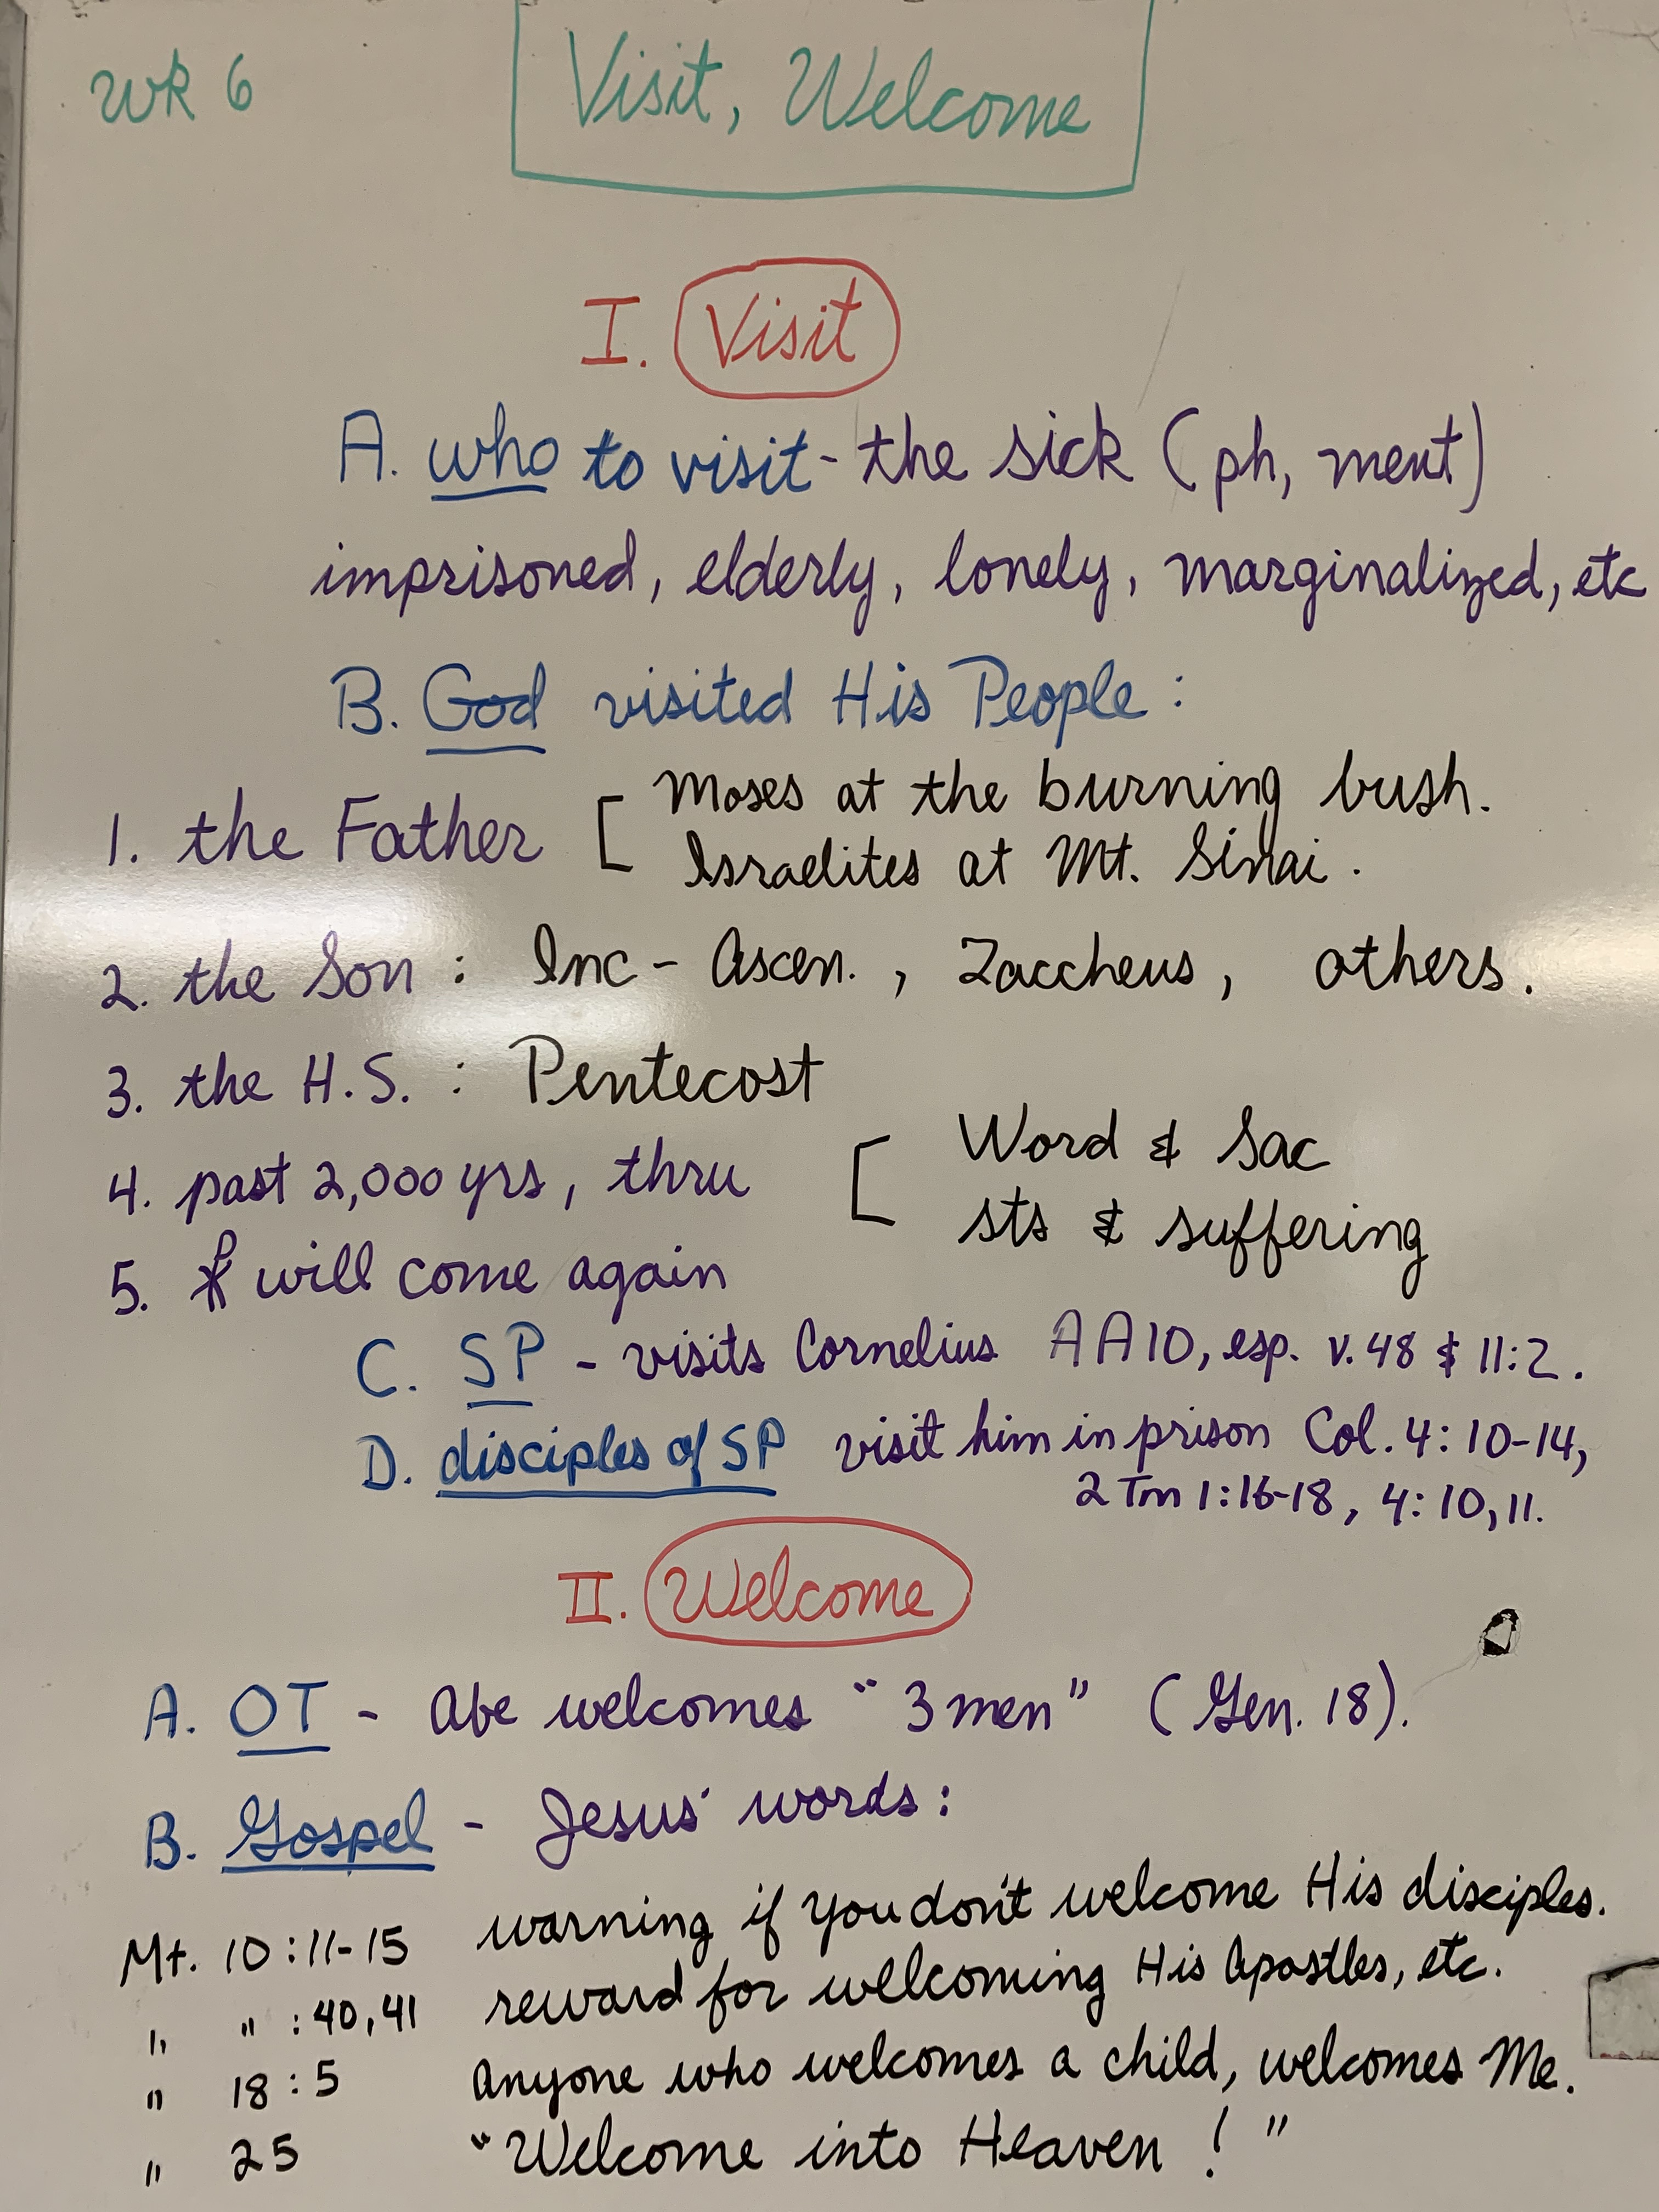 WK 6
Visit, Welcome
I. Visit
A. who to visit - the sick (ph, ment)
imprisoned, elderly, lonely, marginalized, etc
B. God visited His People:
1. the Father [ Moses at the burning bush.
Israelites at Mt. Sinai.
2. the Son: Inc - Ascen., Zaccheus, others.
3. the H.S.: Pentecost
4. past 2,000 yrs, thru [ Word & Sac
sts & suffering
5. ☧ will come again
C. SP - visits Cornelius AA 10, esp. v. 48 & 11:2.
D. disciples of SP visit him in prison Col. 4:10-14,
2 Tm 1:16-18, 4:10,11.
II. Welcome
A. OT - Abe welcomes "3 men" (Gen. 18).
B. Gospel - Jesus' words:
Mt. 10:11-15 warning if you don't welcome His disciples.
" " :40,41 reward for welcoming His Apostles, etc.
" 18:5 Anyone who welcomes a child, welcomes Me.
" 25 "Welcome into Heaven!"